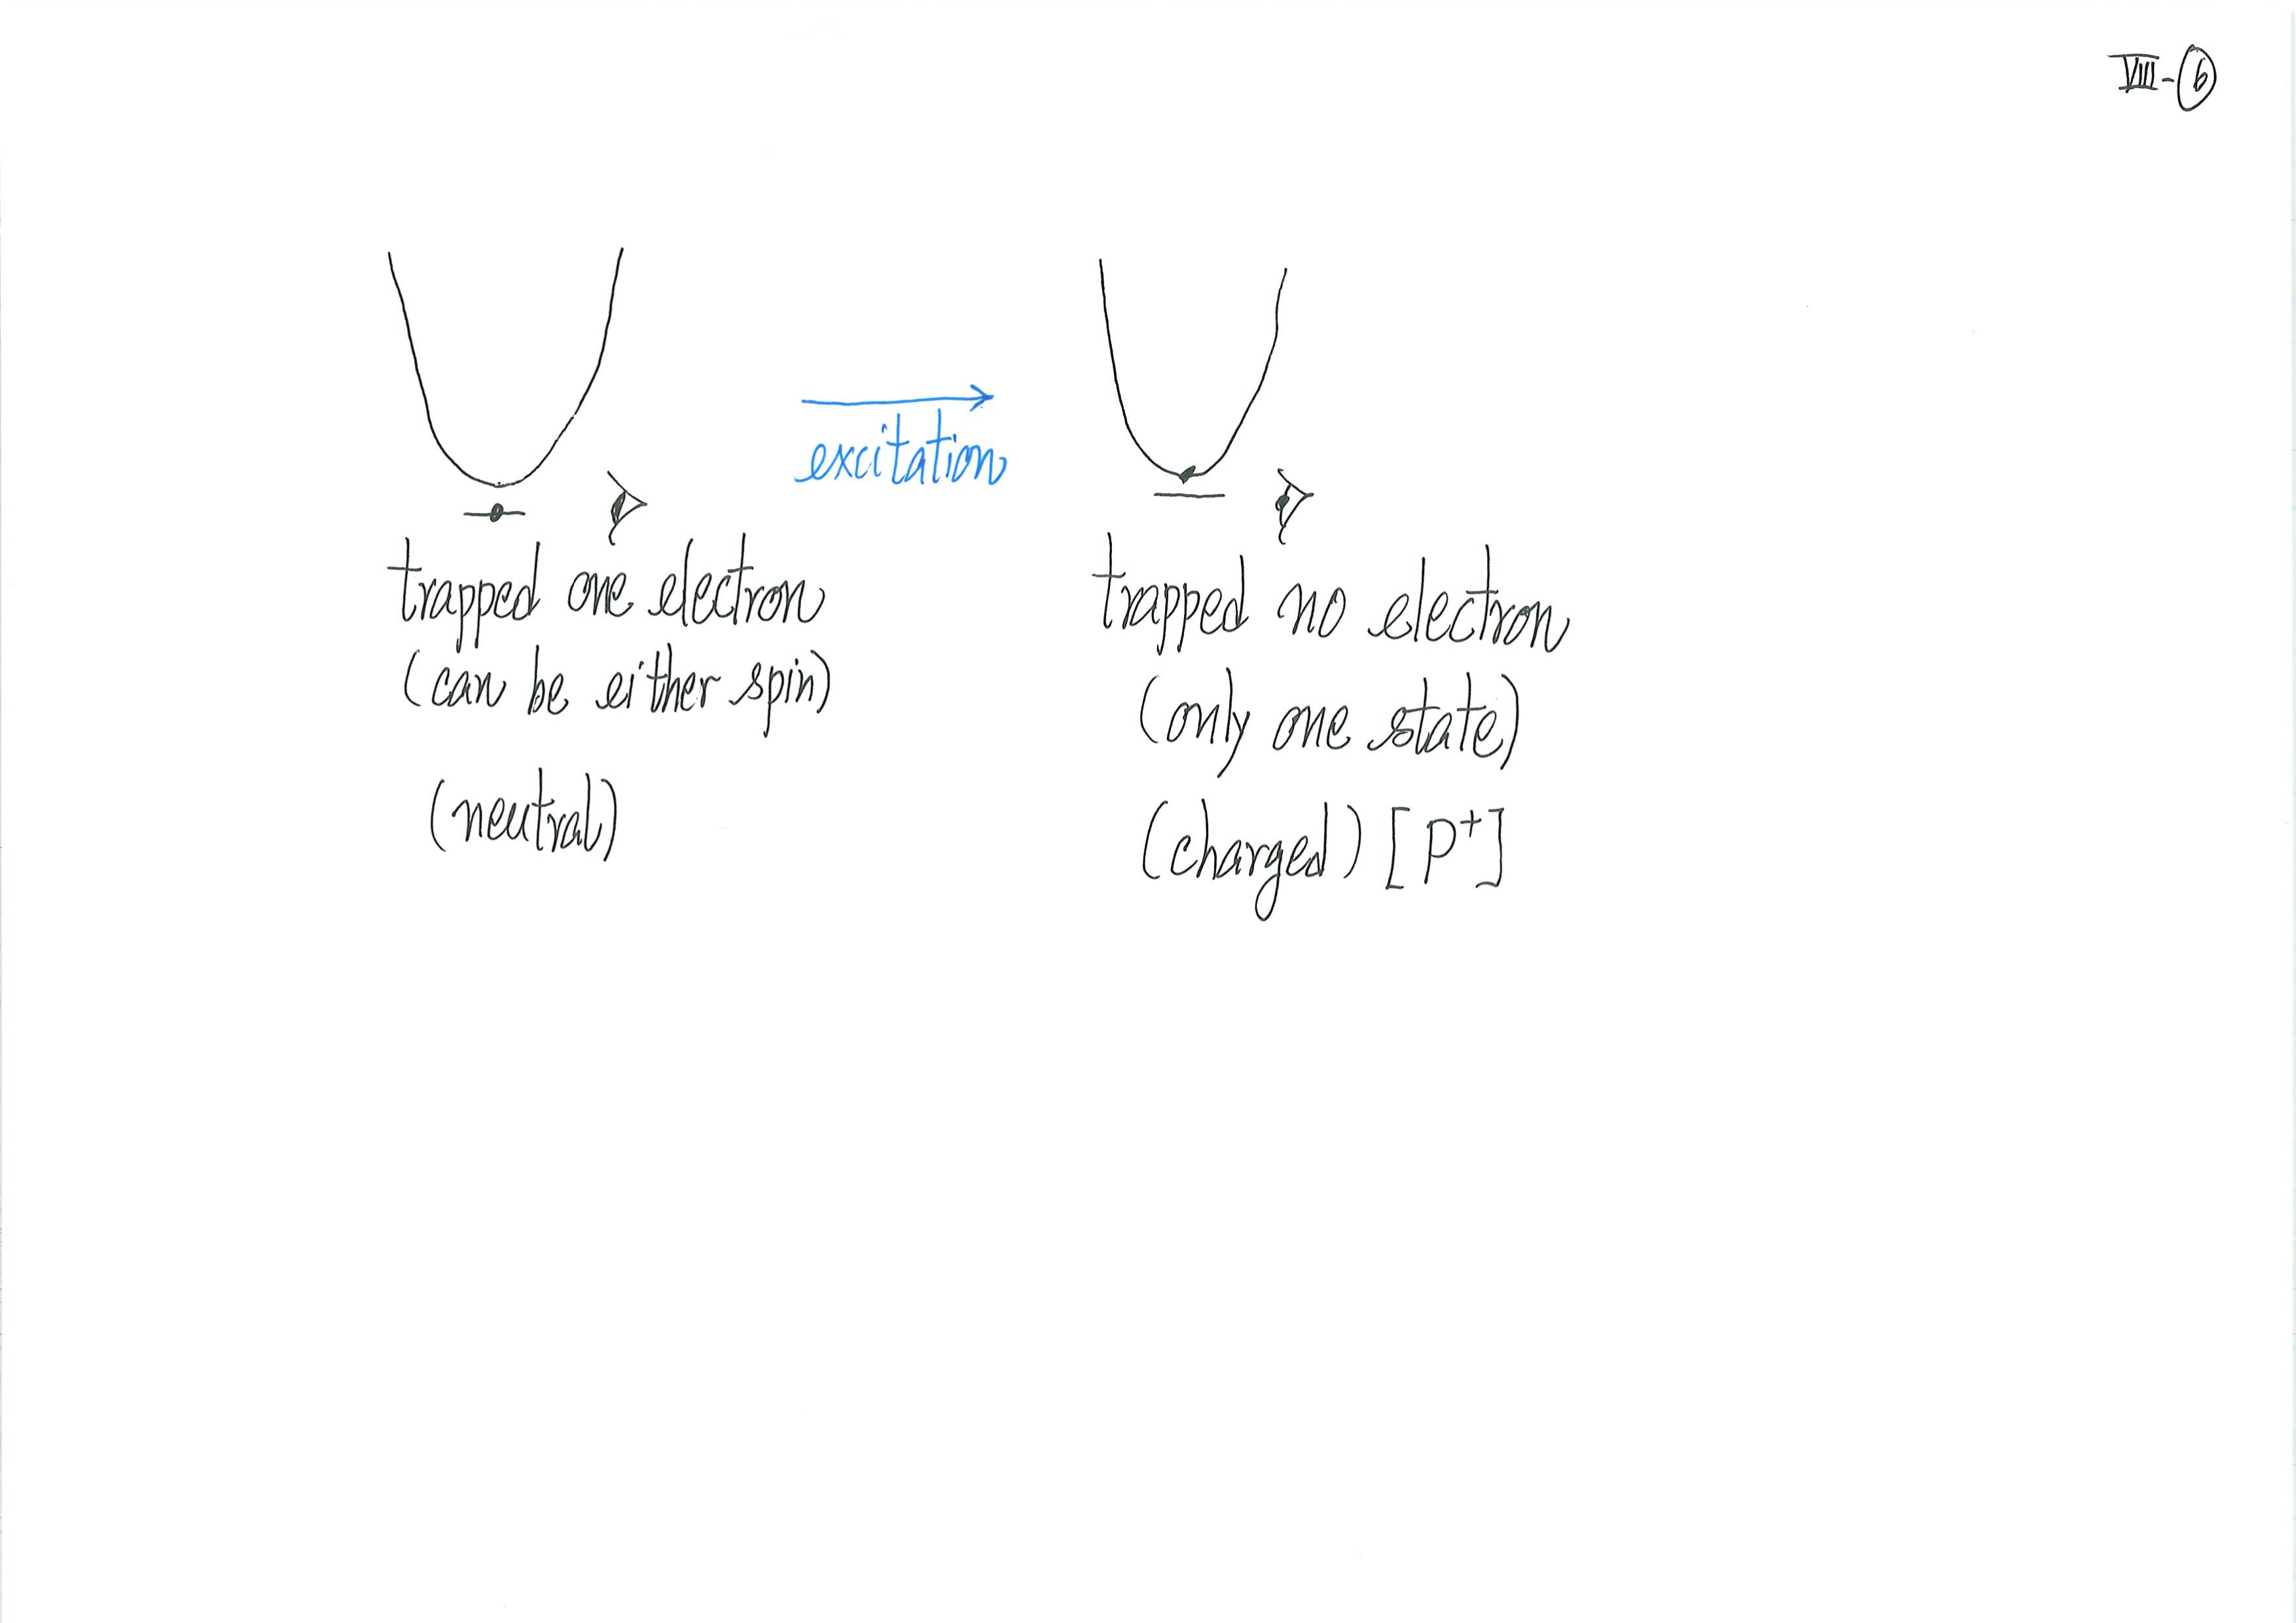 VIII-⑥
excitation
trapped one electron
(can be either spin)
(neutral)
trapped no electron
(only one state)
(charged) [P⁺]